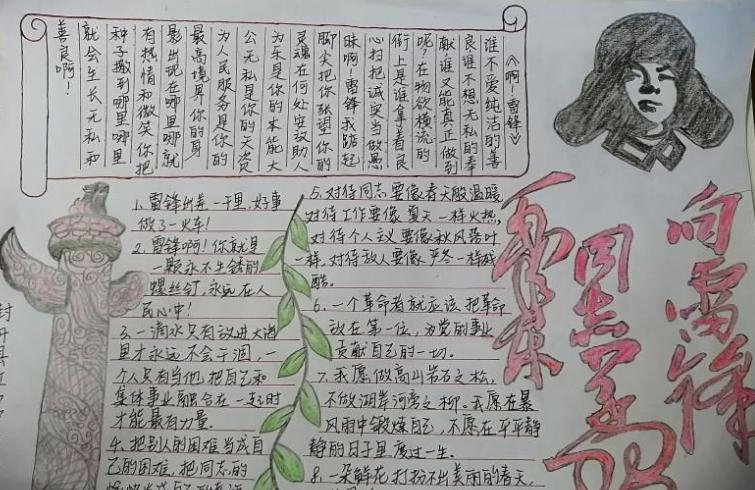 《啊!雷锋》
谁不爱纯洁的善
良谁不想无私的奉
献谁又能真正做到
呢?在物欲横流的
街上是谁拿着良
心扫把诚实当做愚
昧啊!雷锋我踮起
脚尖把你张望你的
灵魂在何处安放助人
为乐是你的本能大
公无私是你的天资
为人民服务是你的
最高境界你的身
影出现在哪里哪就
有热情和微笑你把
种子撒到哪里哪里
就会生长无私和
善良啊!
向雷锋
同志学习
毛泽东
1、雷锋出差一千里,好事
做了一火车!
2、雷锋啊!你就是
一颗永不生锈的
螺丝钉,永远在人
民心中!
3、一滴水只有放进大海
里才永远不会干涸,一
个人只有当他把自己和
集体事业融合在一起时
才能最有力量。
4、把别人的困难当成自
己的困难,把同志的
5、对待同志要像春天般温暖
对待工作要像夏天一样火热,
对待个人主义要像秋风落叶
一样,对待敌人要像严冬一样残
酷。
6、一个革命者就应该把革命
放在第一位,为党的事业
贡献自己的一切。
7、我愿做高山岩石之松,
不做湖岸河旁之柳。我愿在暴
风雨中锻炼自己,不愿在平平静
静的日子里度过一生。
8、一朵鲜花打扮不出美丽的春天,
封开县